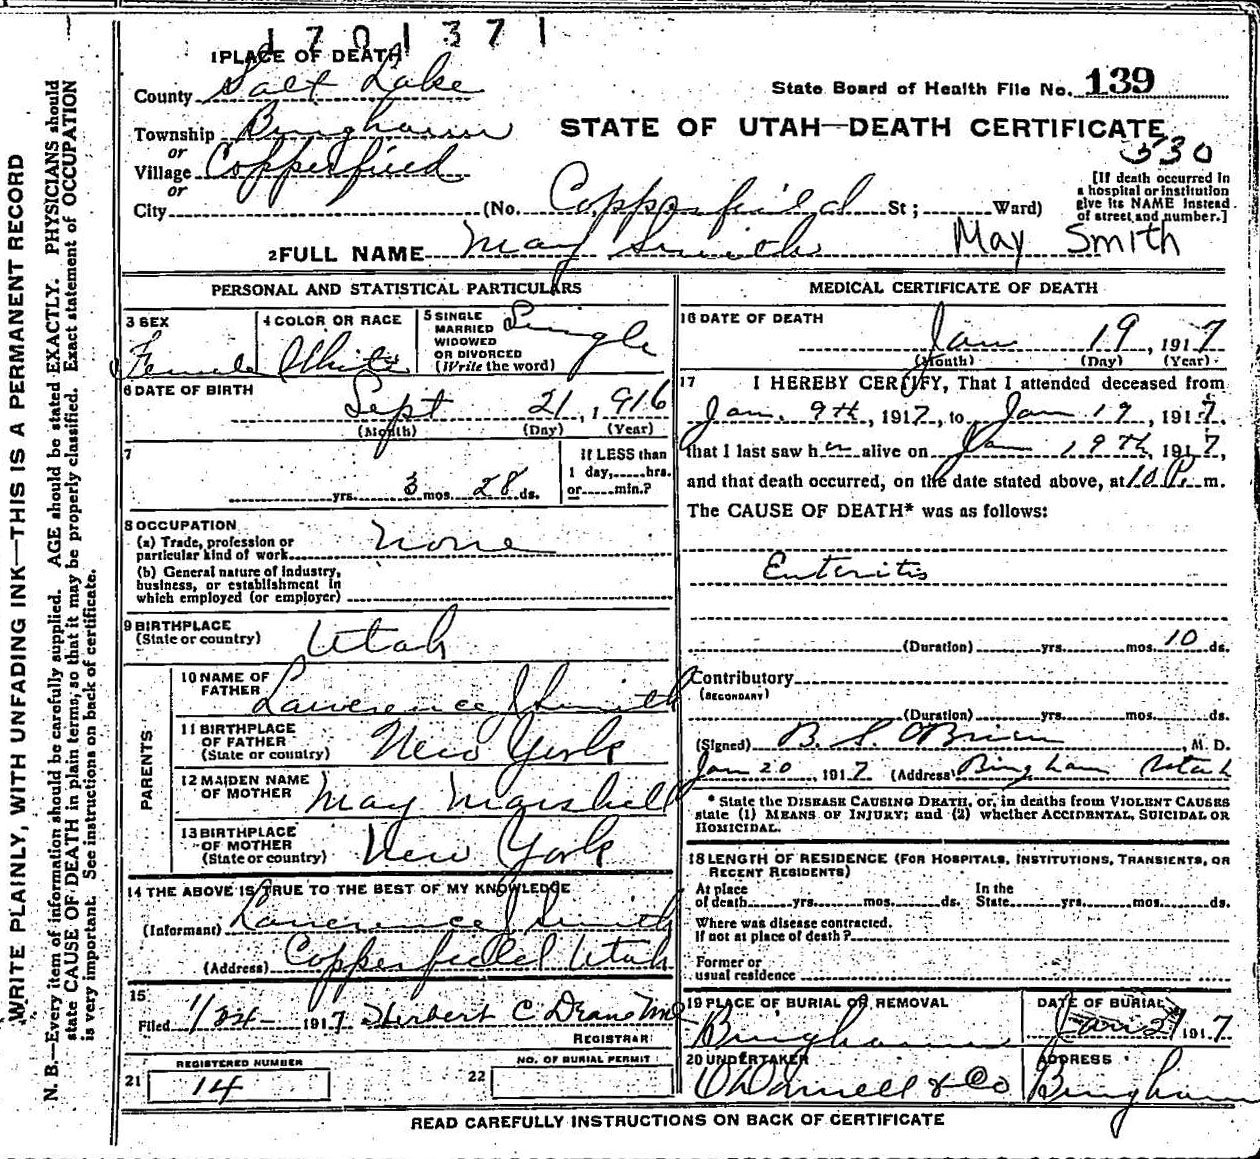 1701371
1 PLACE OF DEATH
County Salt Lake
State Board of Health File No. 139
Township Bingham
STATE OF UTAH—DEATH CERTIFICATE
or
Village Copperfield
530
or
City (No. Copperfield St; Ward)
[If death occurred in
a hospital or institution
give its NAME instead
of street and number.]
2 FULL NAME May Smith May Smith
PERSONAL AND STATISTICAL PARTICULARS
3 SEX
Female
4 COLOR OR RACE
White
5 SINGLE
MARRIED
WIDOWED
OR DIVORCED
(Write the word)
Single
6 DATE OF BIRTH
Sept 21, 1916
(Month) (Day) (Year)
7
yrs. 3 mos. 28 ds.
If LESS than
1 day, hrs.
or min.?
8 OCCUPATION
(a) Trade, profession or
particular kind of work none
(b) General nature of industry,
business, or establishment in
which employed (or employer)
9 BIRTHPLACE
(State or country) Utah
PARENTS
10 NAME OF
FATHER Lawrence J Smith
11 BIRTHPLACE
OF FATHER
(State or country) New York
12 MAIDEN NAME
OF MOTHER May Marshell
13 BIRTHPLACE
OF MOTHER
(State or country) New York
14 THE ABOVE IS TRUE TO THE BEST OF MY KNOWLEDGE
(Informant) Lawrence J Smith
(Address) Copperfield Utah
15
Filed 1/24 1917 Herbert C Deane
REGISTRAR
REGISTERED NUMBER
21 14
NO. OF BURIAL PERMIT
22
MEDICAL CERTIFICATE OF DEATH
16 DATE OF DEATH
Jan 19, 1917
(Month) (Day) (Year)
17 I HEREBY CERTIFY, That I attended deceased from
Jan. 9th, 1917, to Jan 19, 1917,
that I last saw her alive on Jan 19th, 1917,
and that death occurred, on the date stated above, at 10 P. m.
The CAUSE OF DEATH* was as follows:
Enteritis
(Duration) yrs. mos. 10 ds.
Contributory
(SECONDARY)
(Duration) yrs. mos. ds.
(Signed) B. S. O'Brien, M. D.
Jan 20, 1917 (Address) Bingham Utah
* State the DISEASE CAUSING DEATH, or, in deaths from VIOLENT CAUSES
state (1) MEANS OF INJURY; and (2) whether ACCIDENTAL, SUICIDAL OR
HOMICIDAL.
18 LENGTH OF RESIDENCE (FOR HOSPITALS, INSTITUTIONS, TRANSIENTS, OR
RECENT RESIDENTS)
At place
of death yrs. mos. ds.
In the
State yrs. mos. ds.
Where was disease contracted.
If not at place of death?
Former or
usual residence
19 PLACE OF BURIAL OR REMOVAL
Bingham
DATE OF BURIAL
Jan 21 1917
20 UNDERTAKER
O'Donnell & Co
ADDRESS
Bingham
READ CAREFULLY INSTRUCTIONS ON BACK OF CERTIFICATE
WRITE PLAINLY, WITH UNFADING INK—THIS IS A PERMANENT RECORD
N. B.—Every item of information should be carefully supplied. AGE should be stated EXACTLY. PHYSICIANS should
state CAUSE OF DEATH in plain terms, so that it may be properly classified. Exact statement of OCCUPATION
is very important. See instructions on back of certificate.